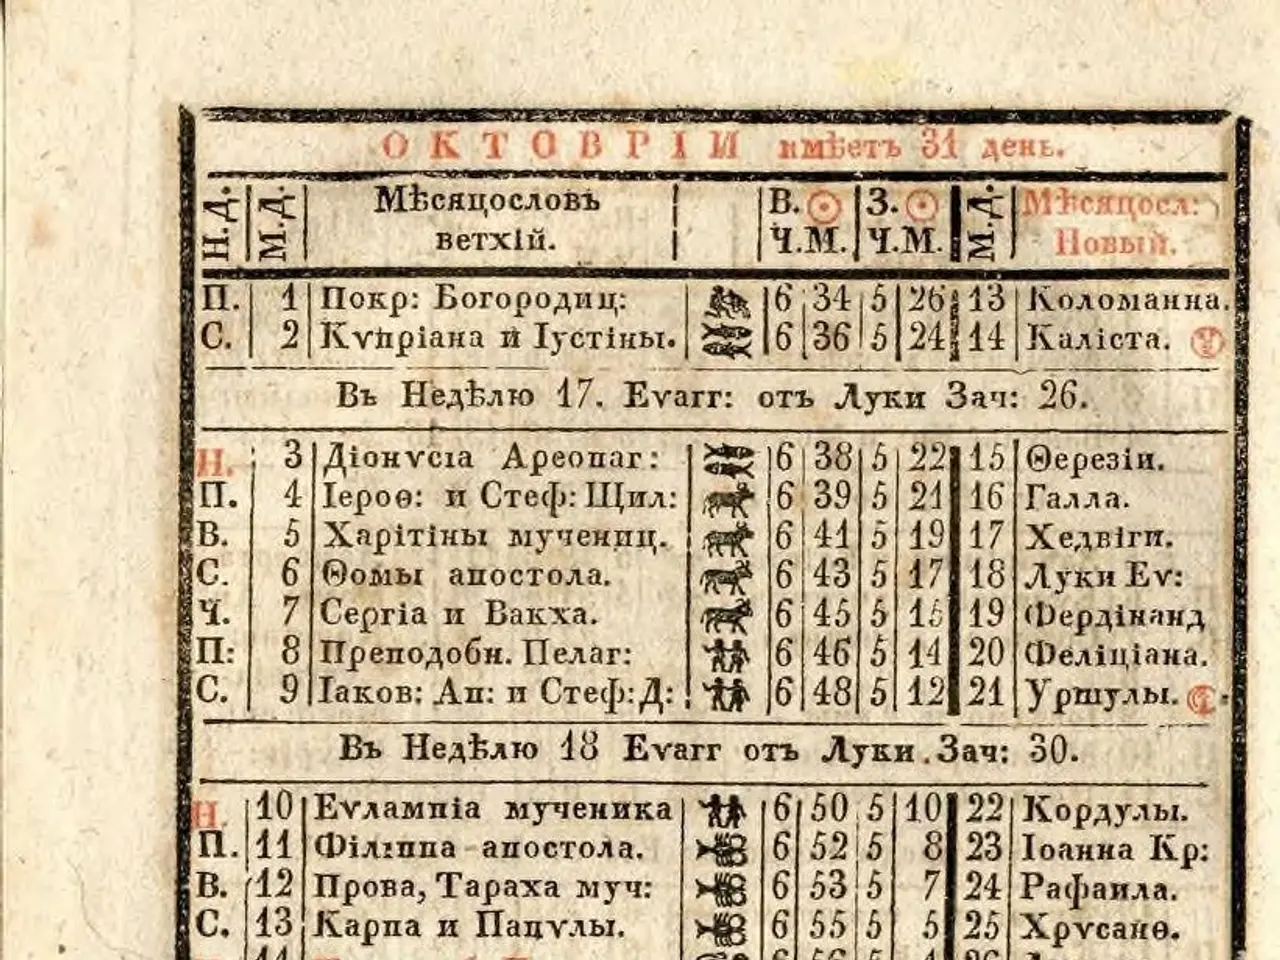 ОКТОВРІЙ имѣетъ 31 день.
Н.Д. М.Д. Мѣсяцословъ ветхій. В.☉ Ч.М. З.☉ Ч.М. М.Д. Мѣсяцосл: Новый.
П. 1 Покр: Богородиц: 6 34 5 26 13 Коломанна.
С. 2 Кѵпріана и Іустіны. 6 36 5 24 14 Каліста.
Въ Недѣлю 17. Еѵагг: отъ Луки Зач: 26.
Н. 3 Діонѵсіа Ареопаг: 6 38 5 22 15 Ѳерезіи.
П. 4 Іероѳ: и Стеф: Щил: 6 39 5 21 16 Галла.
В. 5 Харітіны мучениц. 6 41 5 19 17 Хедвіги.
С. 6 Ѳомы апостола. 6 43 5 17 18 Луки Еѵ:
Ч. 7 Сергіа и Вакха. 6 45 5 15 19 Фердінанд
П: 8 Преподобн. Пелаг: 6 46 5 14 20 Феліціана.
С. 9 Іаков: Ап: и Стеф: Д: 6 48 5 12 21 Уршулы.
Въ Недѣлю 18 Еѵагг отъ Луки. Зач: 30.
Н. 10 Еѵлампіа мученика 6 50 5 10 22 Кордулы.
П. 11 Філіппа апостола. 6 52 5 8 23 Іоанна Кр:
В. 12 Прова, Тараха муч: 6 53 5 7 24 Рафаила.
С. 13 Карпа и Папѵлы. 6 55 5 5 25 Хрѵсанѳ.